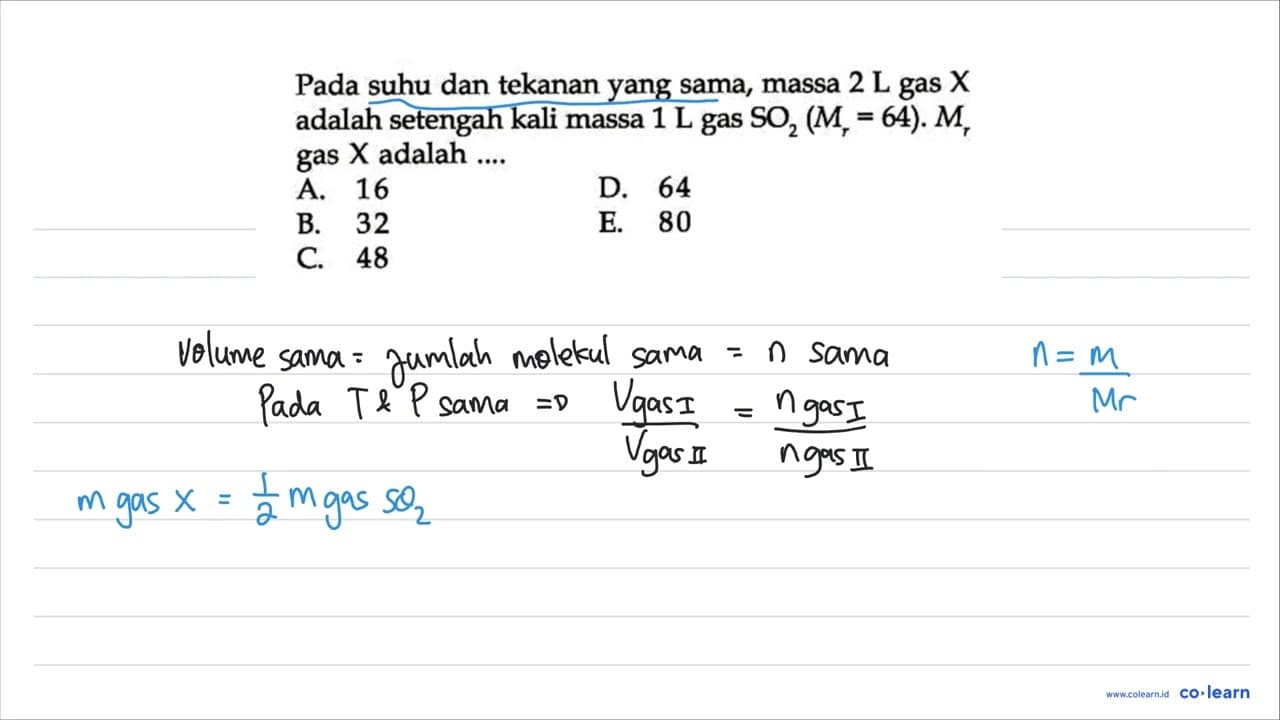 Pada suhu dan tekanan yang sama, massa 2 L gas X
adalah setengah kali massa 1 L gas SO₂ (Mᵣ = 64). Mᵣ
gas X adalah ....
A. 16
B. 32
C. 48
D. 64
E. 80
Volume sama = jumlah molekul sama = n sama
Pada T & P sama => Vgas I / Vgas II = n gas I / n gas II
n = m / Mr
m gas X = 1/2 m gas SO₂
www.colearn.id co·learn